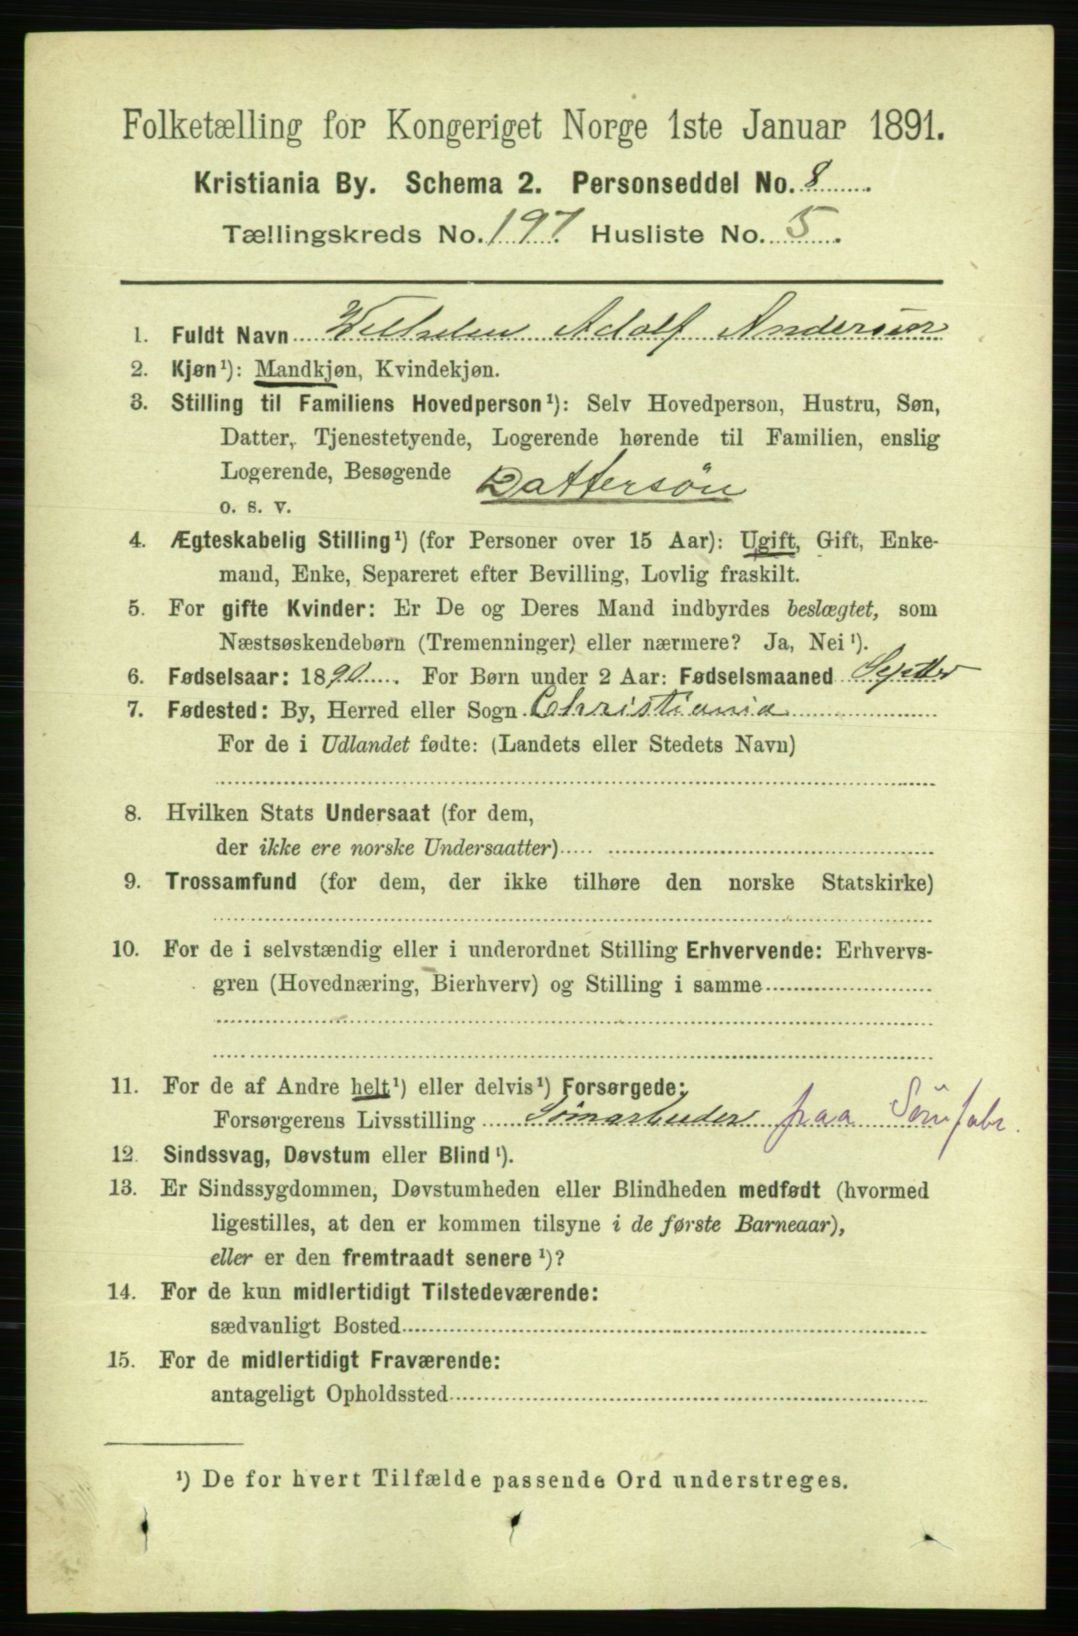 Folketælling for Kongeriget Norge 1ste Januar 1891.
Kristiania By. Schema 2. Personseddel No. 8
Tællingskreds No. 197. Husliste No. 5.
1. Fuldt Navn Wilhelm Adolf Andersen
2. Kjøn¹): Mandkjøn, Kvindekjøn.
3. Stilling til Familiens Hovedperson¹): Selv Hovedperson, Hustru, Søn,
Datter, Tjenestetyende, Logerende hørende til Familien, enslig
Logerende, Besøgende Dattersön
o. s. v.
4. Ægteskabelig Stilling¹) (for Personer over 15 Aar): Ugift, Gift, Enke-
mand, Enke, Separeret efter Bevilling, Lovlig fraskilt.
5. For gifte Kvinder: Er De og Deres Mand indbyrdes beslægtet, som
Næstsøskendebørn (Tremenninger) eller nærmere? Ja, Nei¹).
6. Fødselsaar: 1890. For Børn under 2 Aar: Fødselsmaaned
7. Fødested: By, Herred eller Sogn Christiania
For de i Udlandet fødte: (Landets eller Stedets Navn)
8. Hvilken Stats Undersaat (for dem,
der ikke ere norske Undersaatter)
9. Trossamfund (for dem, der ikke tilhøre den norske Statskirke)
10. For de i selvstændig eller i underordnet Stilling Erhvervende: Erhvervs-
gren (Hovednæring, Bierhverv) og Stilling i samme
11. For de af Andre helt¹) eller delvis¹) Forsørgede:
Forsørgerens Livsstilling Sömarbeider paa Sömfabr.
12. Sindssvag, Døvstum eller Blind¹).
13. Er Sindssygdommen, Døvstumheden eller Blindheden medfødt (hvormed
ligestilles, at den er kommen tilsyne i de første Barneaar),
eller er den fremtraadt senere¹)?
14. For de kun midlertidigt Tilstedeværende:
sædvanligt Bosted
15. For de midlertidigt Fraværende:
antageligt Opholdssted
¹) De for hvert Tilfælde passende Ord understreges.